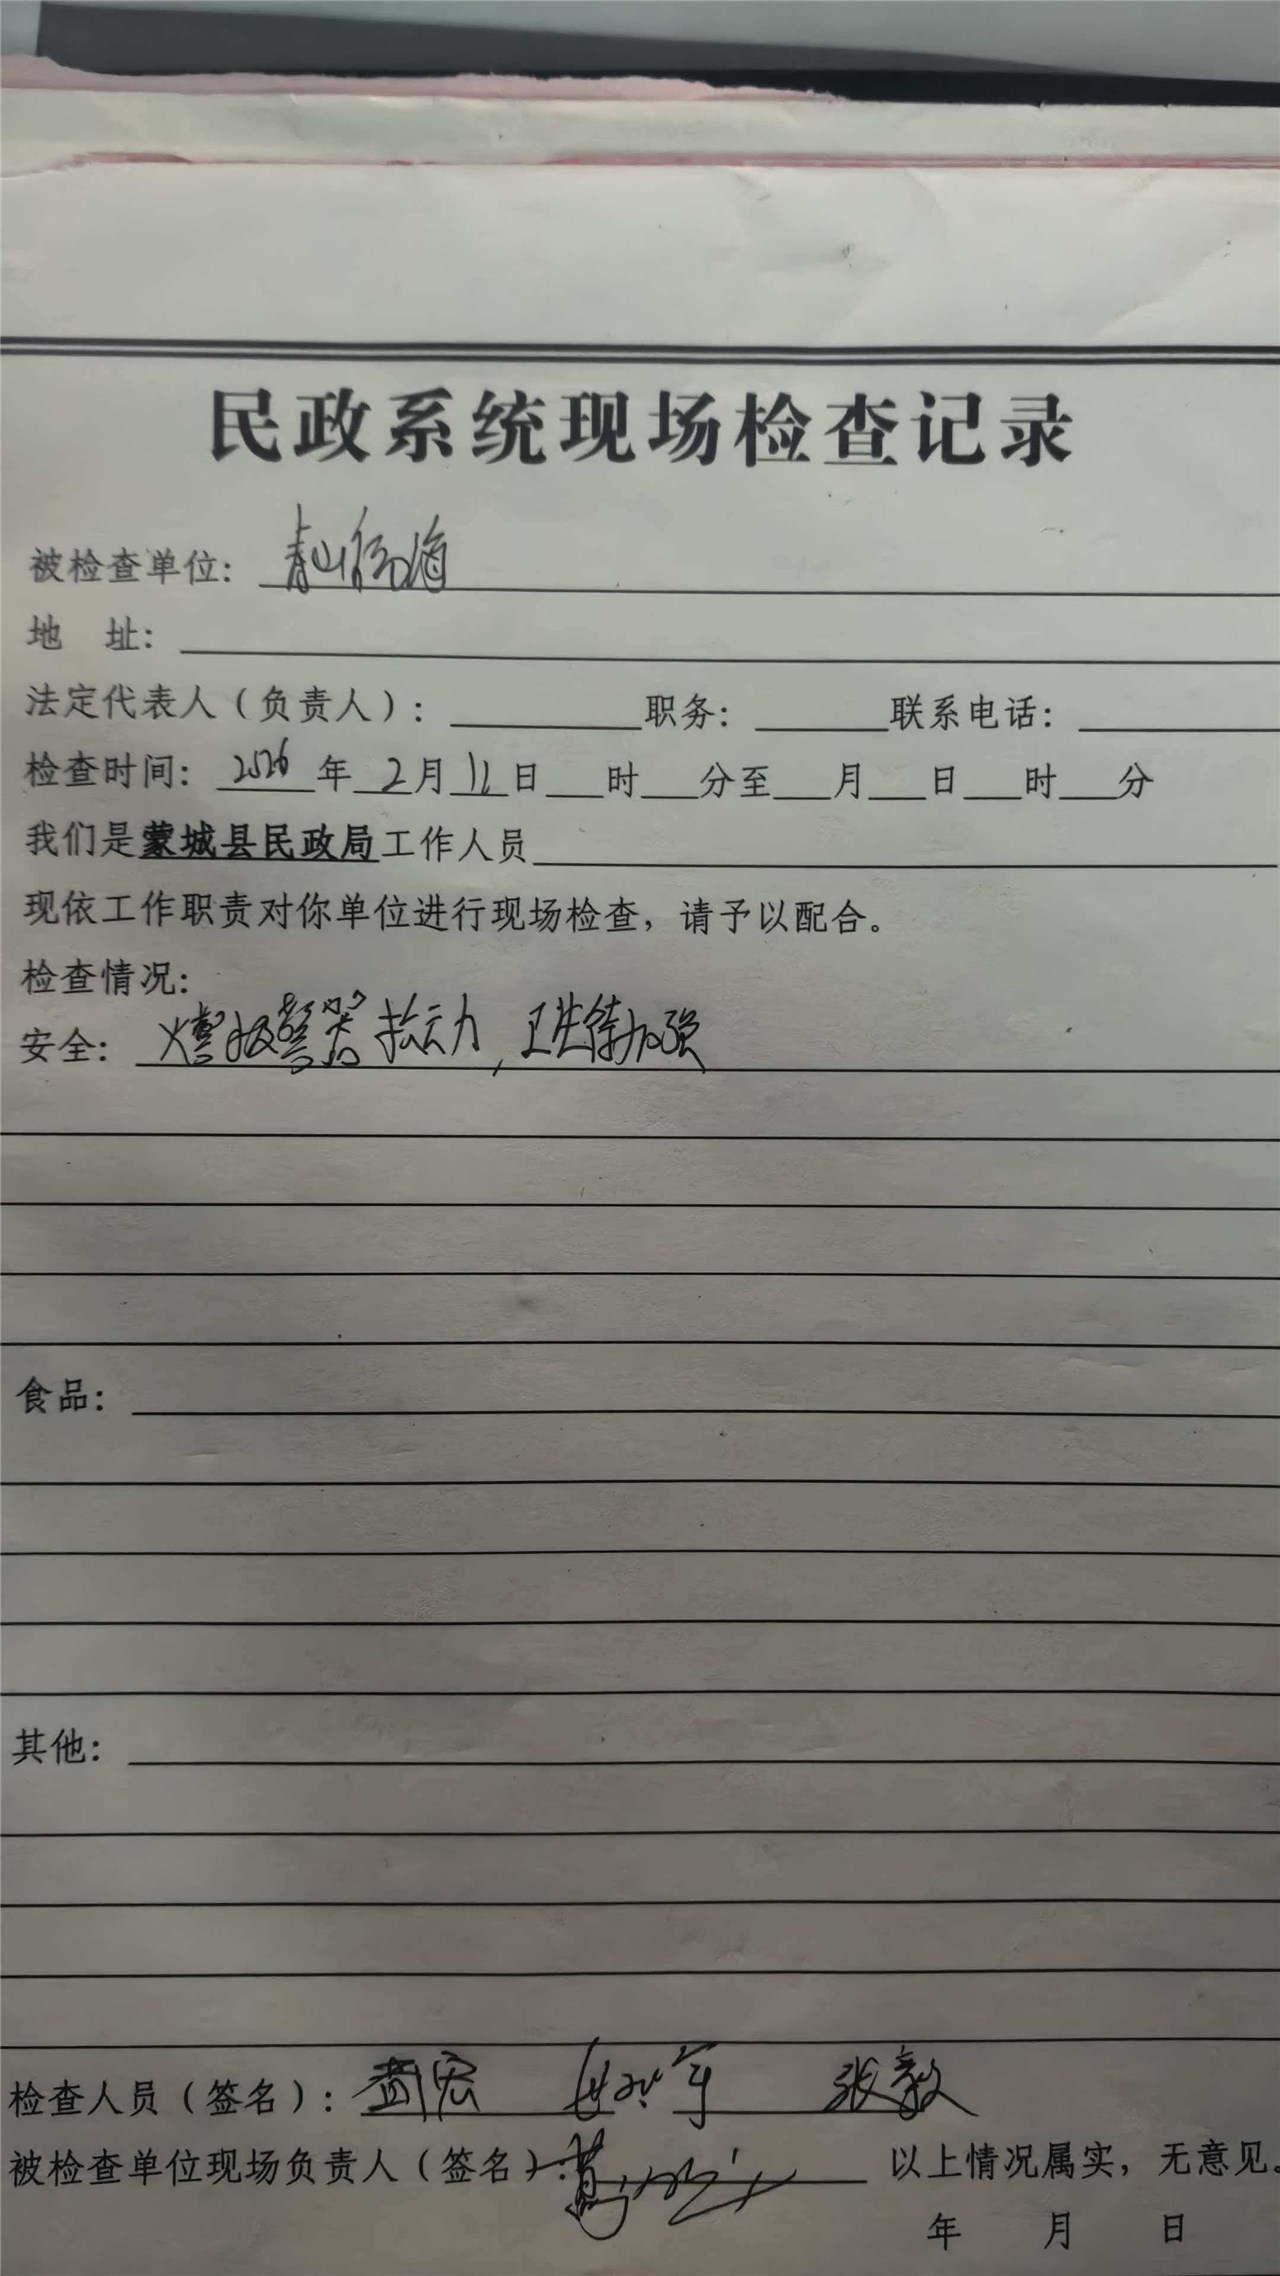 民政系统现场检查记录
被检查单位：青山
地 址：
法定代表人（负责人）： 职务： 联系电话：
检查时间：2026年2月12日 时 分至 月 日 时 分
我们是蒙城县民政局工作人员
现依工作职责对你单位进行现场检查，请予以配合。
检查情况：
安全：报警器 ，卫生待加强
食品：
其他：
检查人员（签名）： 张毅
被检查单位现场负责人（签名）： 以上情况属实，无意见。
年 月 日